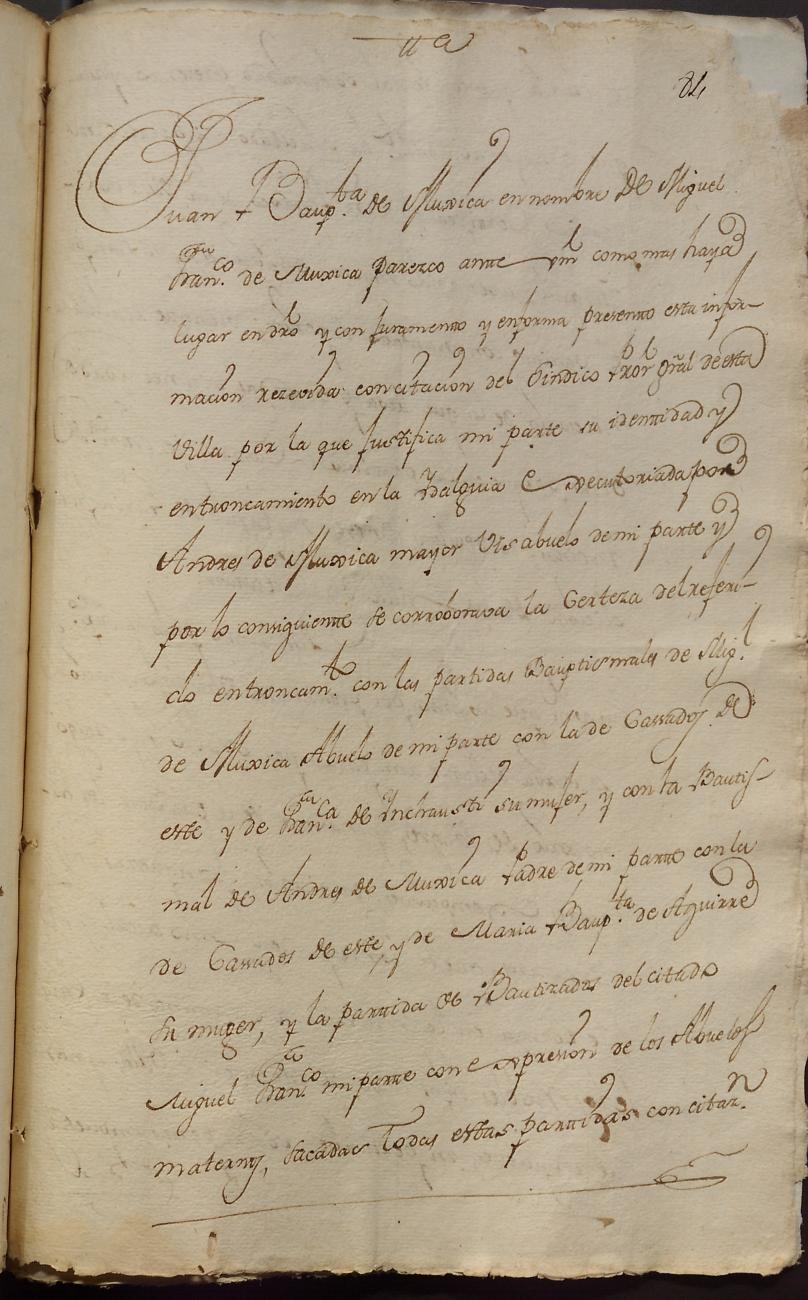 84
Juan Baup.ta de Muxica en nombre De Miguel
Fran.co de Muxica parezco ante vm como mas haya
lugar en dro y con juramento y enforma presento esta infor-
macion rezevida con citacion del Sindico Pror gñal de esta
Villa por la que justifica mi parte su identidad y
entroncamiento en la Ydalguia executoriada por
Andres de Muxica mayor Visabuelo de mi parte y
por lo consiguiente se corroborava la Certeza del referi-
do entroncam.to con las partidas Bauptismales de Mig.l
de Muxica Abuelo de mi parte con la de Cassados de
este y de Fran.ca de Ynchausti su mujer, y con la Bautis-
mal de Andres de Muxica Padre de mi parte con la
de Cassados de este, y de Maria Baup.ta de Aguirre
su muger, y la partida de Bautizados del citado
Miguel Fran.co mi parte con expresion de los Abuelos
maternos, sacadas todas estas partidas con citaz.n